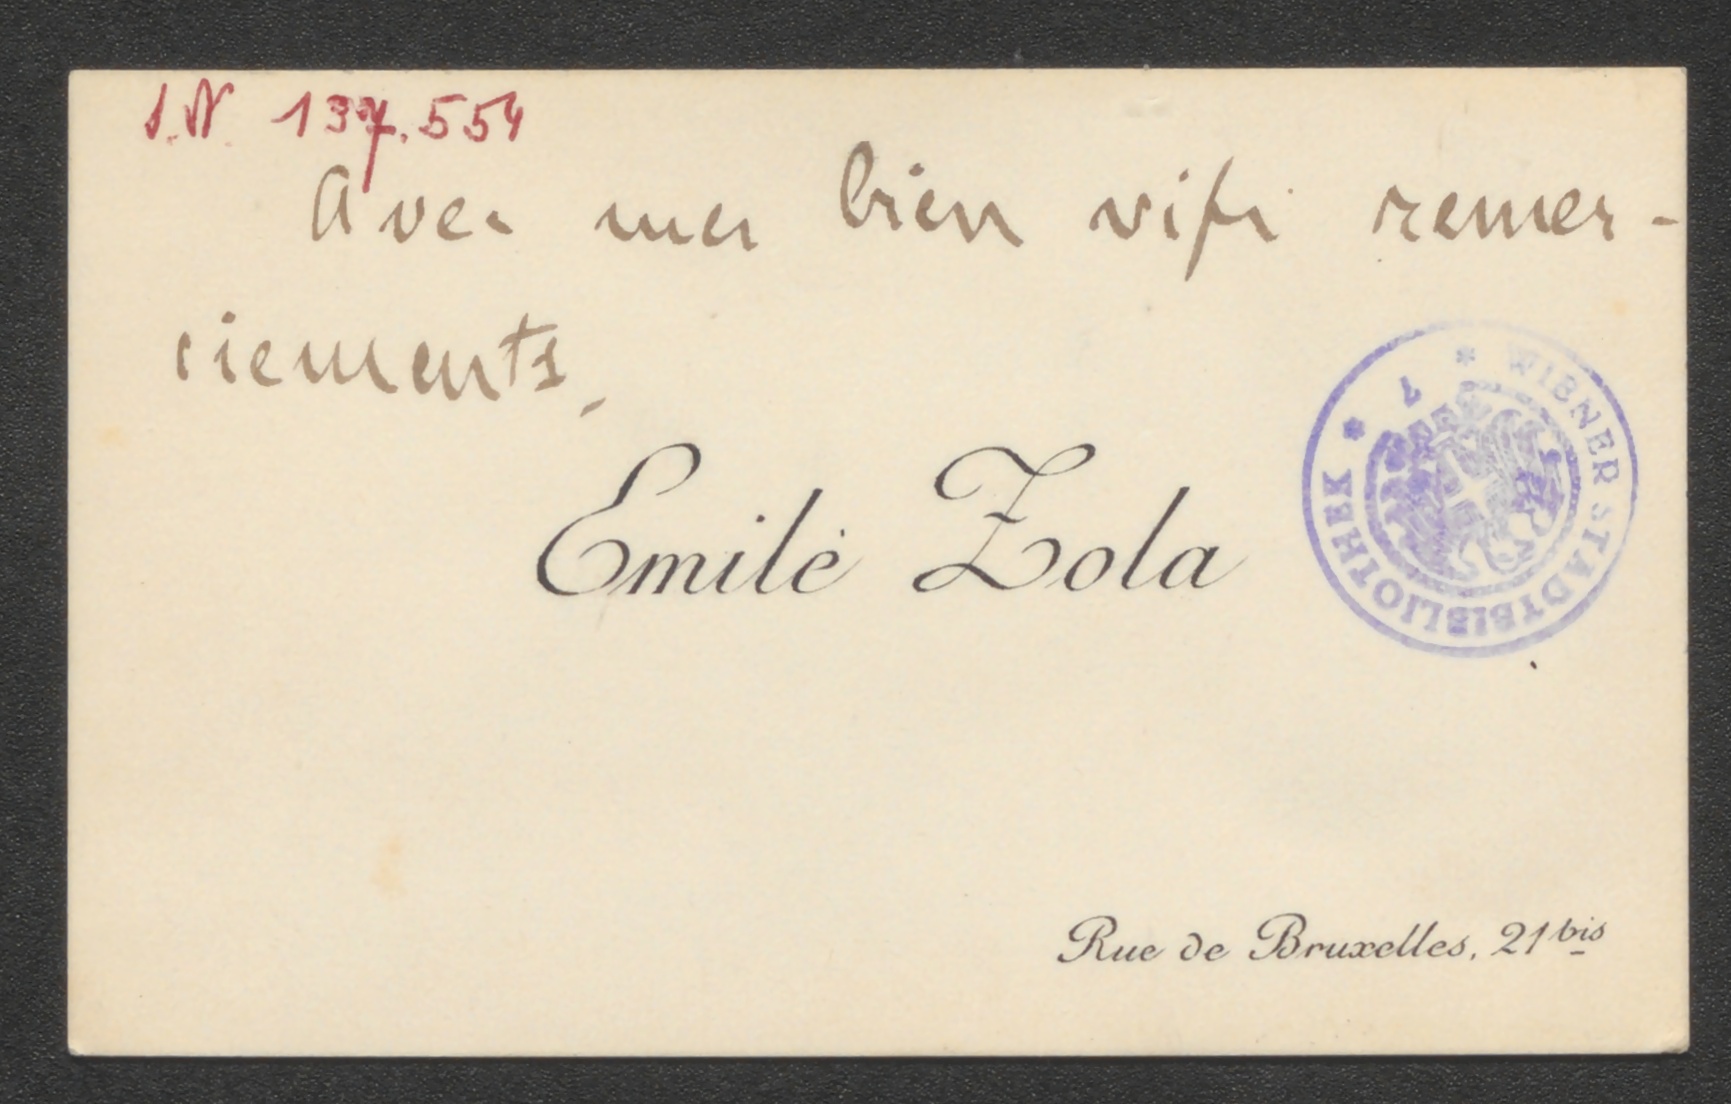 I.N. 137.554
Avec mes bien vifs remer-
ciements,
Emile Zola
* WIENER STADTBIBLIOTHEK *
Rue de Bruxelles, 21 bis